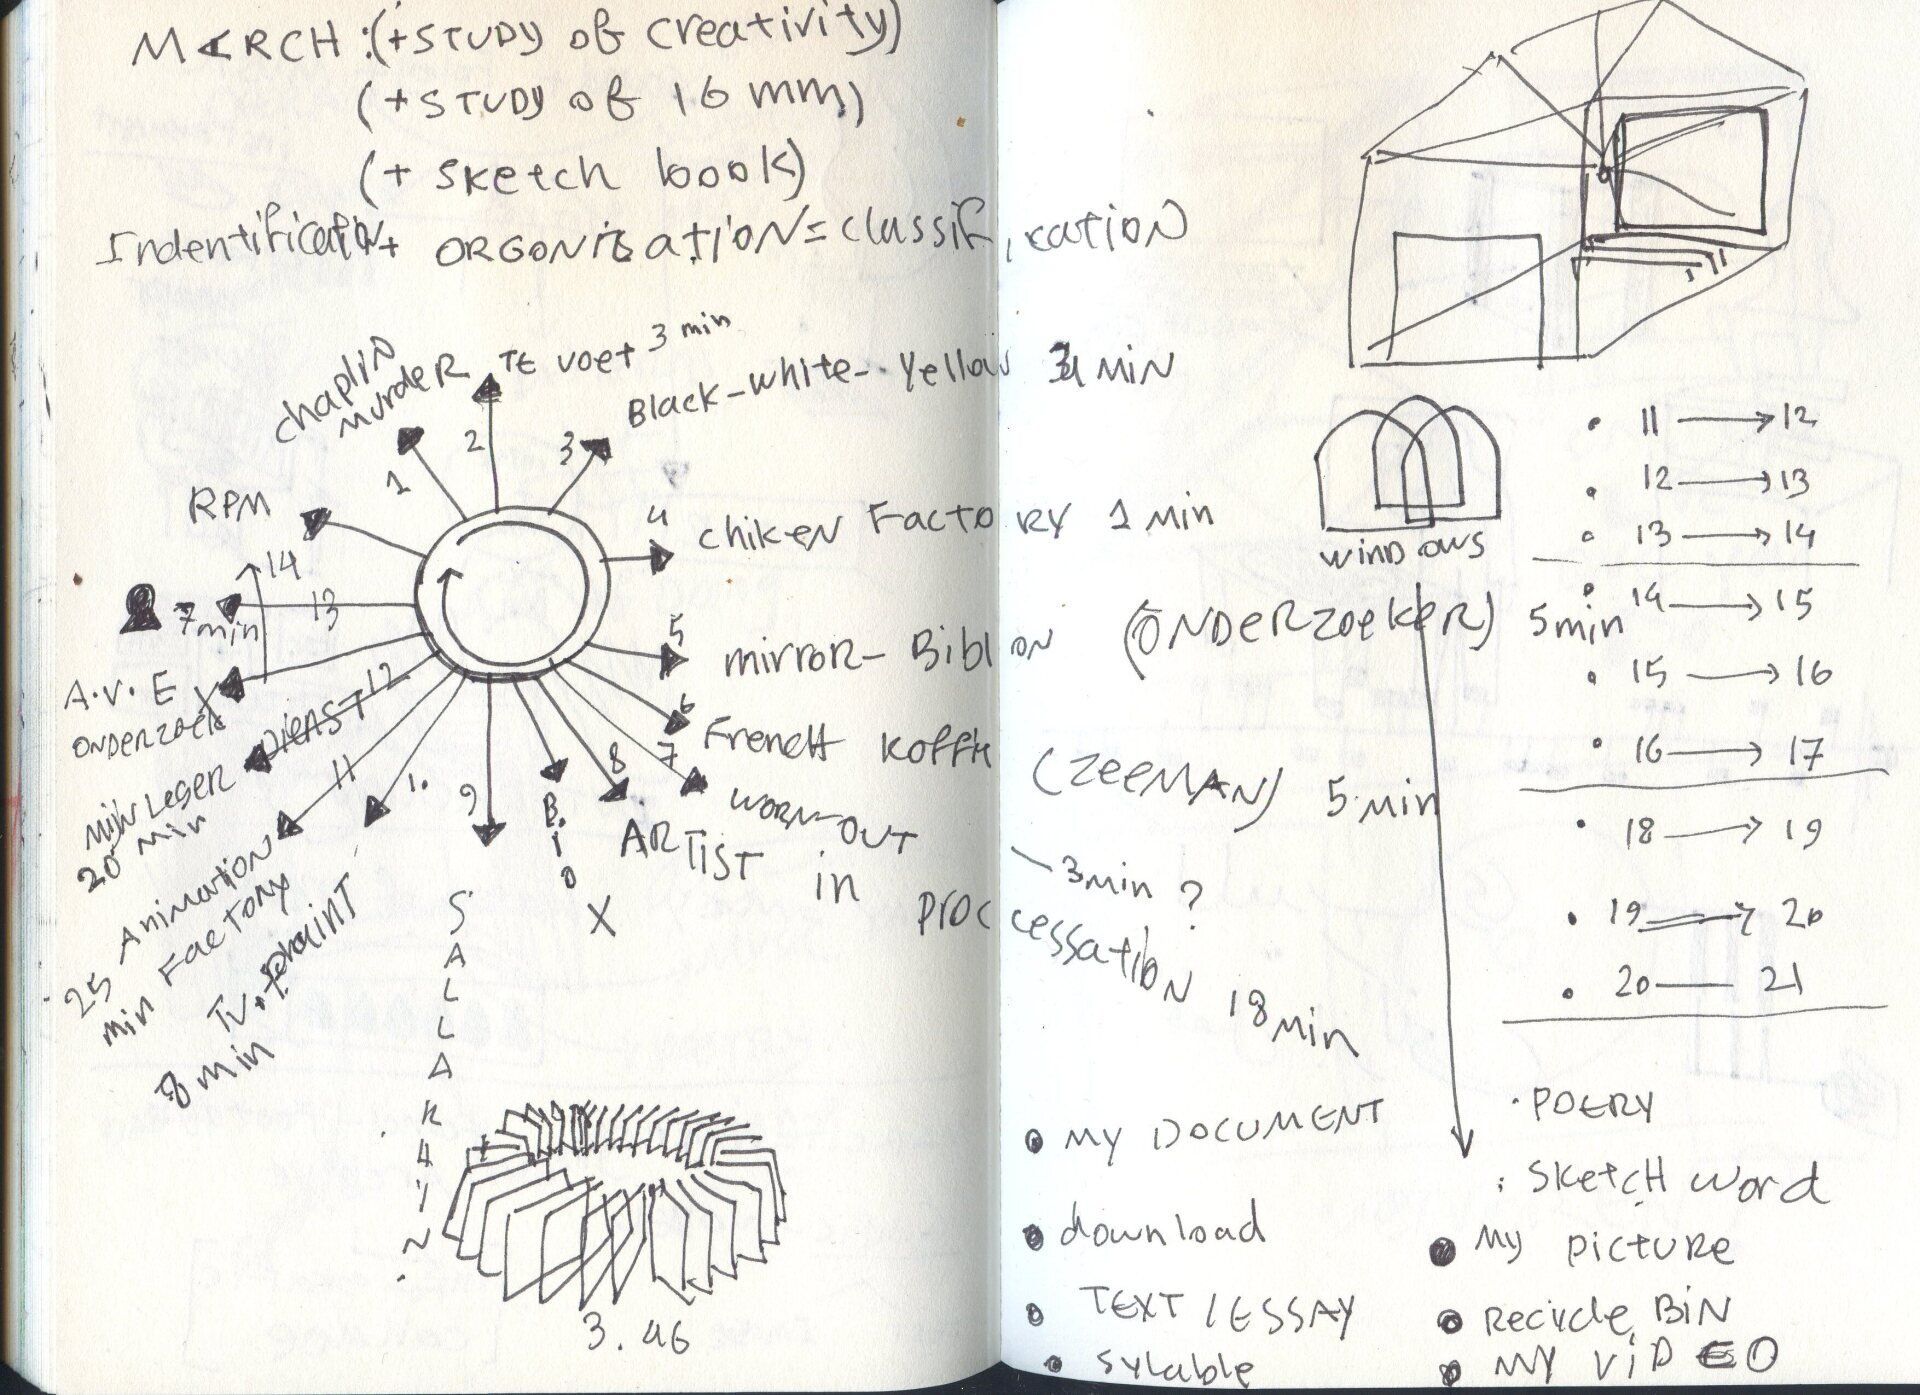 MARCH :(+STUDY OF creativity)
(+STUDY OF 16 mm)
(+ sketch book)
Indentification + ORGONISATION = classification
chaplin
MurdeR
TE voet 3 min
Black-white-Yellow 4 MIN
RPM
1
2
3
4
chiken Factory 1 min
14
13
7 min
5
mirror-Biblion (ONDERZOEKER) 5 min
A.V.E X
ONDERZOEK
12
DIENST
6
French Koffie (ZEEMAN) 5 min
7
WORN-OUT - 3min ?
8
ARTIST in processation 18 Min
mijn Leger
20 min
11
Animation
Factory
25 min
1.
TV.
8 min
9
SALLARYN.
B.IO
X
3.46
WINDOWS
11 → 12
12 → 13
13 → 14
14 → 15
15 → 16
16 → 17
18 → 19
19 → 20
20 — 21
• MY DOCUMENT
• download
• TEXT / ESSAY
• sylable
• POERY
• SketcH word
• My picture
• Recicle BIN
• MY ViDEO